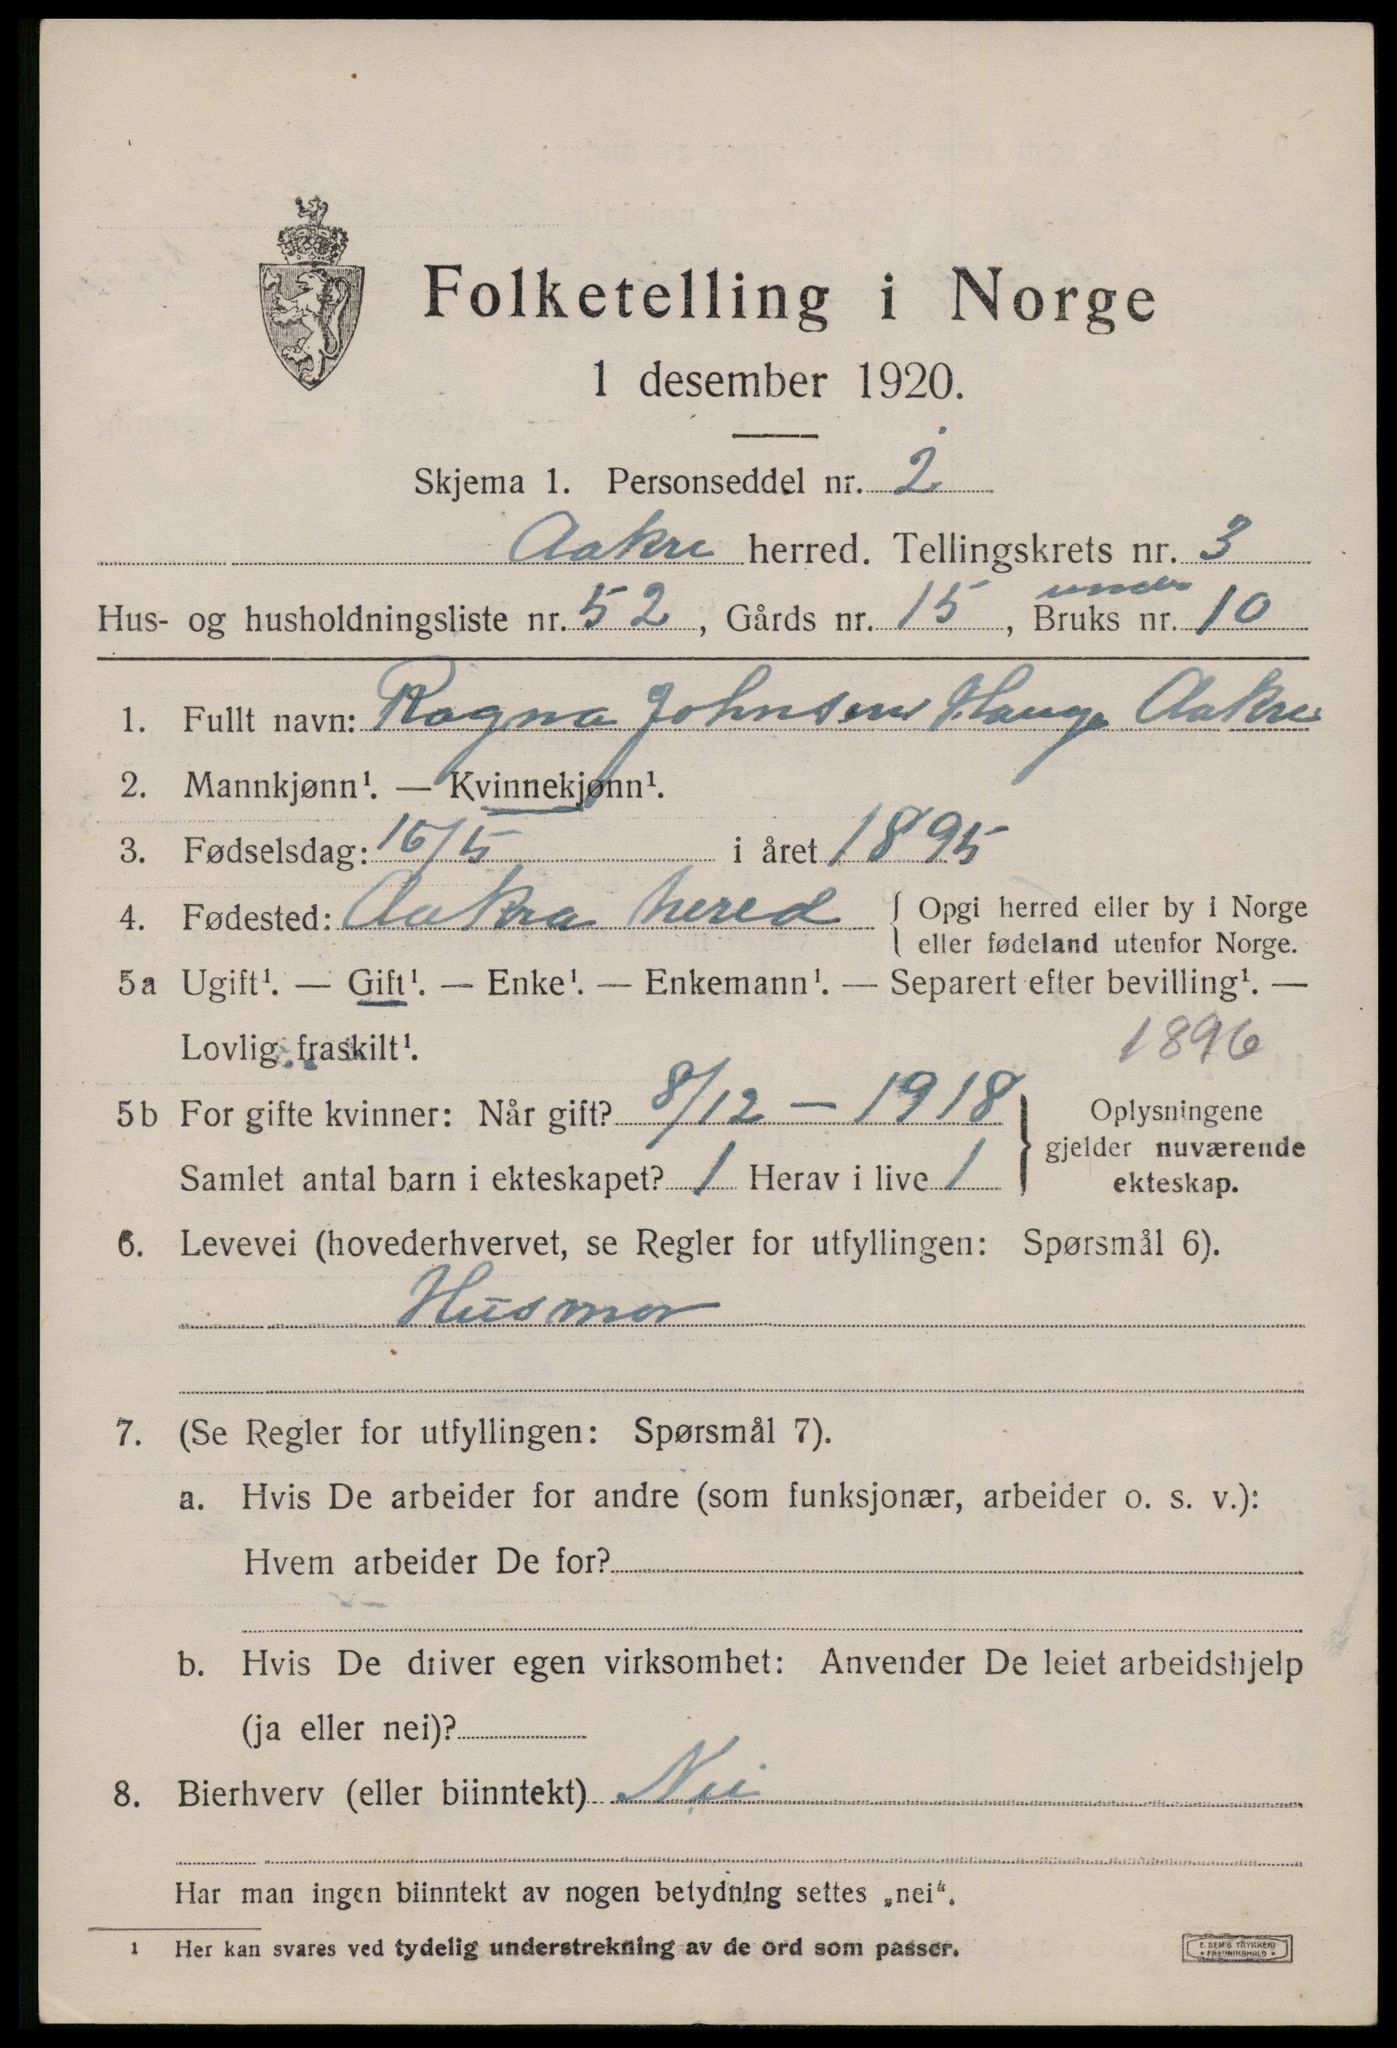 Folketelling i Norge
1 desember 1920.
Skjema 1. Personseddel nr. 2
Aakre herred. Tellingskrets nr. 3
under
Hus- og husholdningsliste nr. 52, Gårds nr. 15, Bruks nr. 10
1. Fullt navn: Ragna Johnsen Hauge Aakre
2. Mannkjønn¹. — Kvinnekjønn¹.
3. Fødselsdag: 15/5 i året 1895
4. Fødested: Aakra hered { Opgi herred eller by i Norge
eller fødeland utenfor Norge.
5a Ugift¹. — Gift¹. — Enke¹. — Enkemann¹. — Separert efter bevilling¹. —
Lovlig fraskilt¹. 1896
5b For gifte kvinner: Når gift? 8/12 — 1918 } Oplysningene
gjelder nuværende
Samlet antal barn i ekteskapet? 1 Herav i live 1 ekteskap.
6. Levevei (hovederhvervet, se Regler for utfyllingen: Spørsmål 6).
Husmor
7. (Se Regler for utfyllingen: Spørsmål 7).
a. Hvis De arbeider for andre (som funksjonær, arbeider o. s. v.):
Hvem arbeider De for?
b. Hvis De driver egen virksomhet: Anvender De leiet arbeidshjelp
(ja eller nei)?
8. Bierhverv (eller biinntekt) Nei
Har man ingen biinntekt av nogen betydning settes „nei“.
1 Her kan svares ved tydelig understrekning av de ord som passer.
E. SEM'S TRYKKERI
• FREDRIKSHALD •